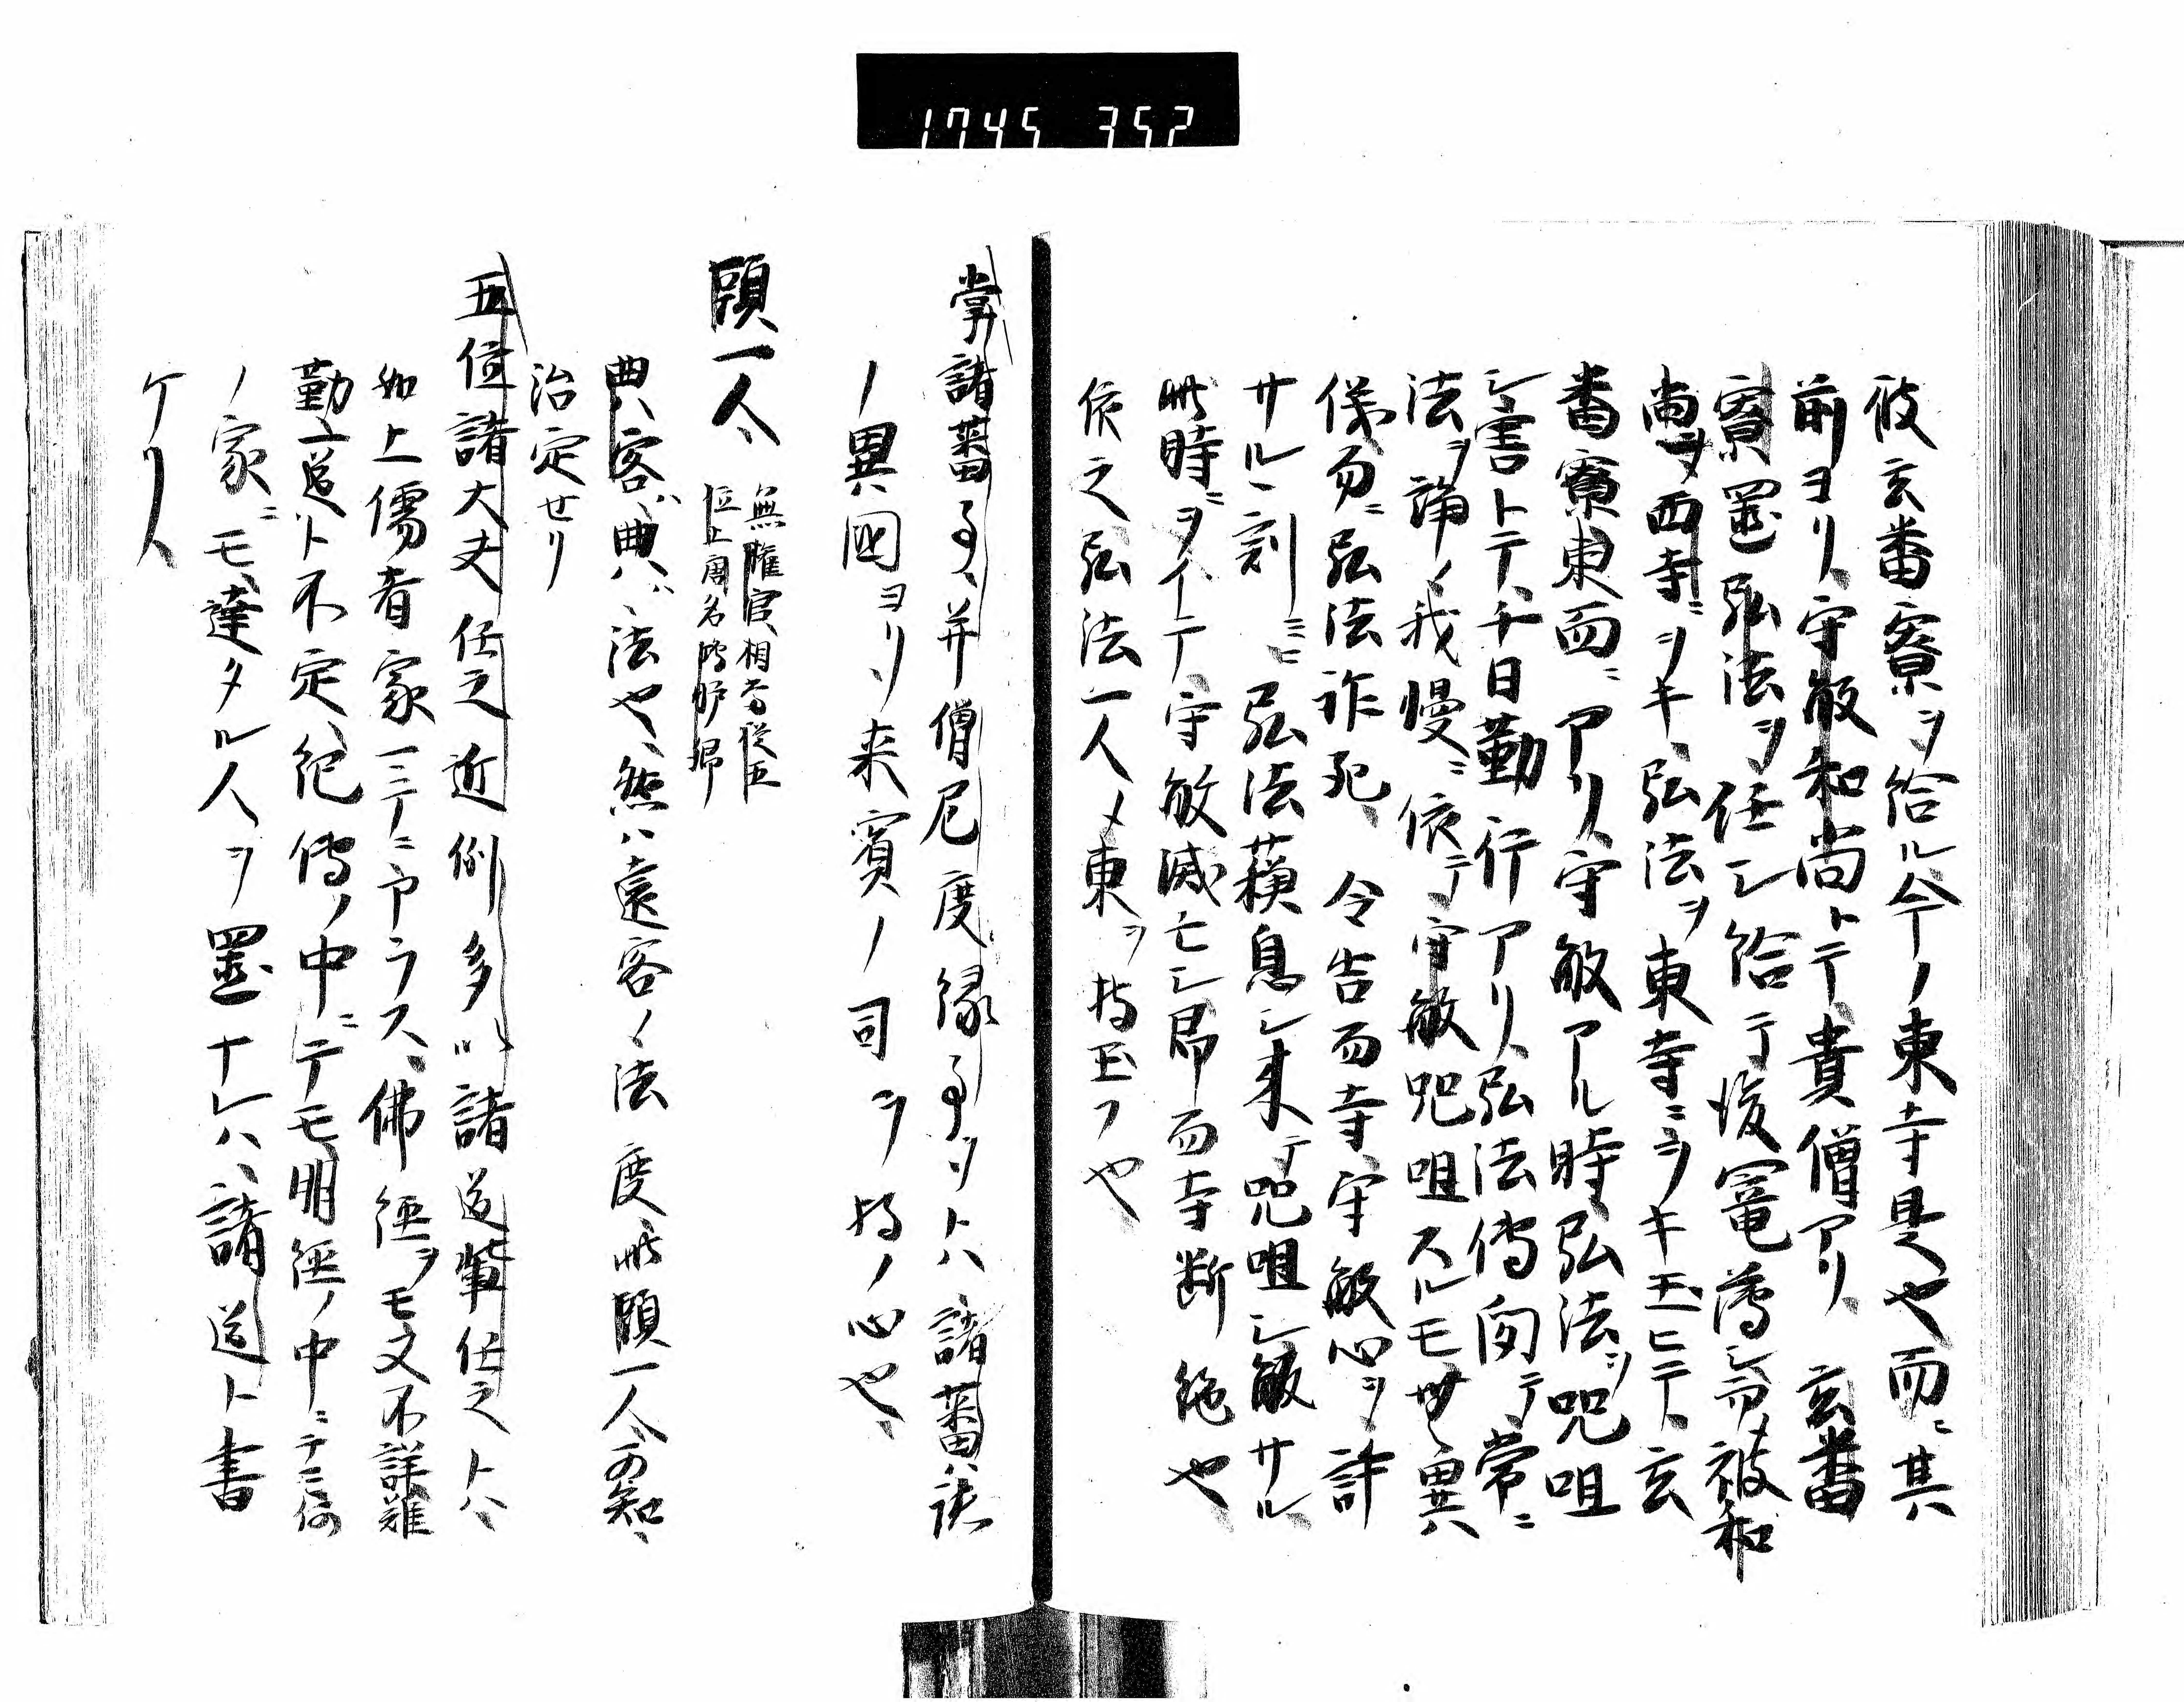 1745 352
彼玄蕃寮ヲ給ル今ノ東寺是也而ニ其
前ヨリ守敏和尚トテ貴僧アリ玄蕃
寮置弘法ヲ任シ給テ後寵薄シ而彼和
尚ヲ西寺ニヲキ弘法ヲ東寺ニヲキ玉ヒテ玄
蕃寮東西ニアリ守敏アル時弘法ヲ咒咀
シ害トテ千日勤行アリ弘法傳聞テ常ニ
法ヲ誦ノ我慢ニ依テ守敏咒咀スルモ無異
儀勿ニ弘法詐死令告西寺守敏心ヲ許
サル刻ミニ弘法蘓息シ来テ咒咀シ敏サル
此時ニヲイテ守敏滅亡シ局西寺断絶也
依之弘法一人〆東ヲ持玉フ也
掌諸蕃事并僧尼度縁事ヲトハ諸蕃ハ諸
ノ異國ヨリ来賓ノ司ヲ持ノ心也
頭一人 無權官相當従五
位上唐名鴻臚卿
典客ハ典ハ法也然ハ遠客ノ法度此頭一人可知
治定セリ
五位諸大夫任之近例多以諸道輩任之トハ
如上儒者家一三ノニヤラス佛経ヲモ又不詳雖
勤一道ト不定紀傳ノ中ニテモ明経ノ中ニテモ何
ノ家ニモ達タル人ヲ置ナレハ諸道ト書
ケリ